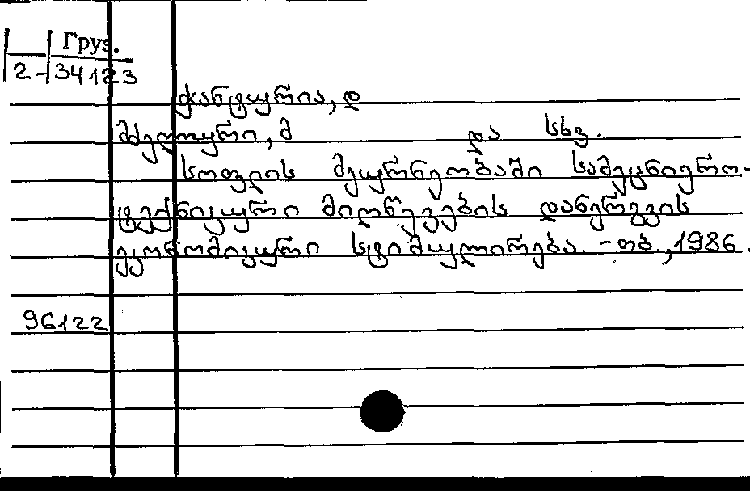 Груз.
2-34123
ქანტურია, დ
მძელური, მ და სხვ.
სოფლის მეურნეობაში სამეცნიერო-
ტექნიკური მიღწევების დანერგვის
ეკონომიკური სტიმულირება. -თბ., 1986.
96122